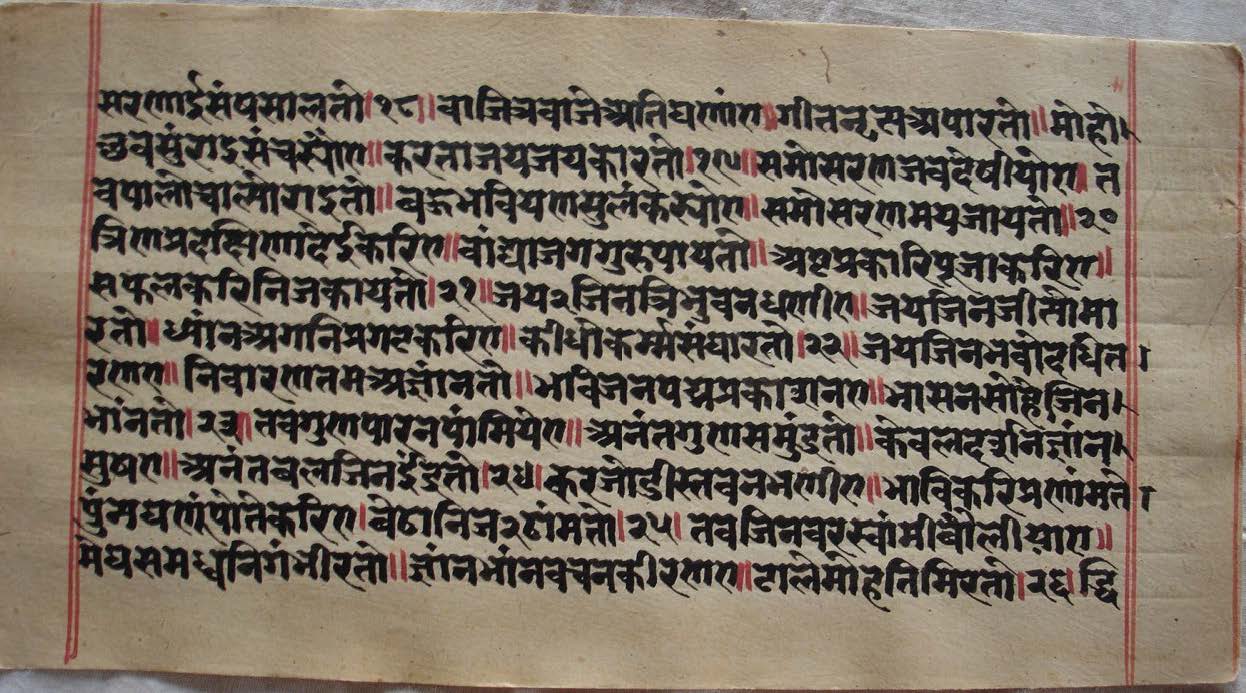 सरणाईसंषसालतो।१८। वाजित्रवाजेअतिघणांए॥गीतनृत्यअपारतो॥मोहो
छवसुंराइसंचर्यांए॥करताजयजयकारतो।१९॥समोसरणजवदेषीयांए।त
वपालोचाल्यांराइतो॥बहूभवियणसुलंकर्यांए॥समोसरणमयजायतो॥२०
त्रिणप्रदक्षिणादेईकरिए॥वांद्याजगगुरुपायतो॥अष्टप्रकारिपूजाकरिए॥
सफलकरिनिजकायतो।२१॥जय२जिनत्रिभुवनधणीए॥जयजिनजीत्तोमा
रतो॥ध्यांनअगनिप्रगटकरिए॥कीधोकर्म्मसंघारतो।२२॥जयजिनभवोदधित
रणए॥निवारणतमअज्ञांनतो॥भविजनपद्मप्रकाशनए॥भासनसोहैजिन
भांनतो।२३।तवगुणपारनपांमियेए॥अनंतगुणसमुंद्रतो॥केवलदर्शनिज्ञांन
सुषए॥अनंतबलजिनइंद्रतो।२४।करजोडीस्तवनभणीए॥भाविकरिप्रणांमते
पुंन्यघणूंपोतेकरिए।बेठानिज२ठांमतो।२५। तवजिनवरस्वांमीबौलीयाए॥
मेघसमध्वनिगंभीरतो॥ज्ञांनभांनवचनकीरणए॥टालेमोहतिमिरतो।२६।द्वि